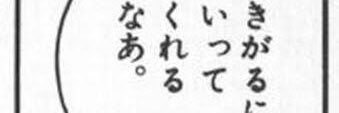 きがるに
いって
くれる
なあ。